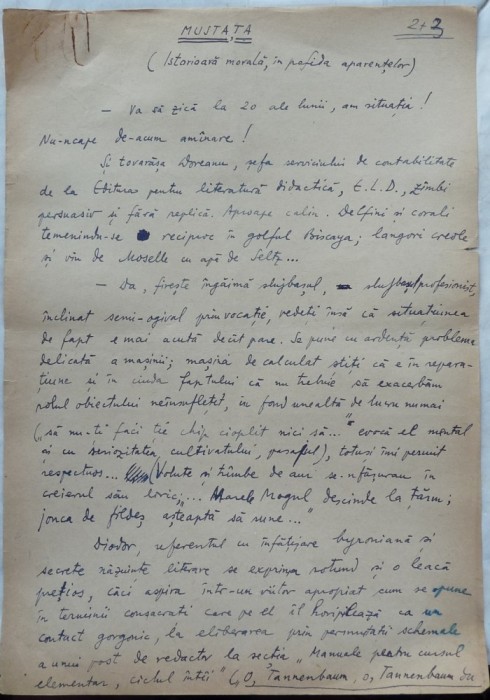 MUSTAȚA
2+3
(Istorioară morală, în pofida aparențelor)
— Va să zică la 20 ale lunii, am situația!
Nu-ncape de-acum amînare!
Și tovarășa Doreanu, șefa serviciului de contabilitate
de la Editura pentru literatură didactică, E.L.D., zîmbi
persuasiv și fără replică. Aproape calin. Delfini și corali
temenindu-se reciproc în golful Biscaya; langori creole
și vin de Moselle cu apă de Seltz...
— Da, firește îngăimă slujbașul, slujbaș profesionist,
înclinat semi-ogival prin vocație, vedeți însă că situațiunea
de fapt e mai acută decît pare. Se pune cu ardență problema
delicată a mașinii; mașina de calculat știți că e în repara-
țiune și în ciuda faptului că nu trebuie să exacerbăm
rolul obiectului neînsuflețit, în fond unealtă de lucru numai
(„să nu-ti faci tie chip cioplit nici să..." evocă el mental
și cu seriozitatea cultivatului, pasajul), totuși îmi permit
respectuos... (Volute și tumbe de aur se-nfășurau în
creierul său liric;... Marele Mogul descinde la țărm;
jonca de fildeș așteaptă să sune..."
Diodor, referentul cu înfățișare byroniană și
secrete năzuințe literare se exprima rotund și o leacă
prețios, căci aspira într-un viitor apropiat cum se spune
în termenii consacrați care pe el îl horipilează ca un
contact gorgonic, la eliberarea prin permutații schemale
a unui post de redactor la secția „Manuale pentru cursul
elementar, ciclul întîi" („O, Tannenbaum, o, Tannenbaum du